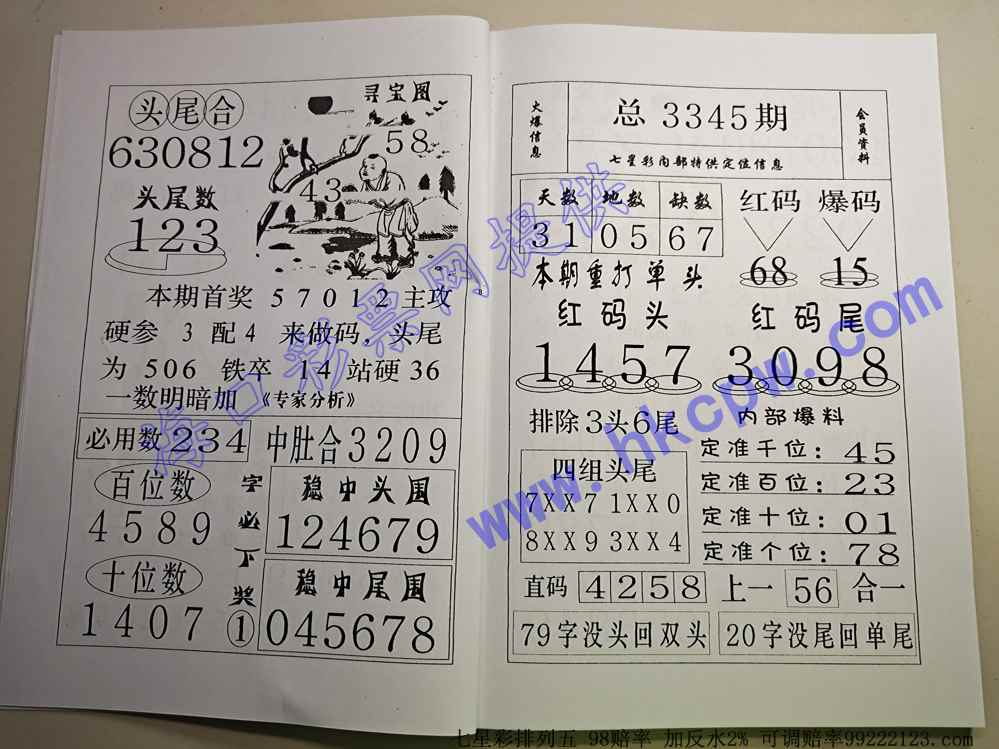 头尾合
630812
寻宝图
58
43
头尾数
123
本期首奖 57012主攻
硬参 3 配4 来做码,头尾
为506 铁卒 14站硬36
一数明暗加 《专家分析》
必用数 234 中肚合3209
百位数
4589
十位数
1407
字必下奖①
稳中头围
124679
稳中尾围
045678
火爆信息
总 3345期
七星彩内部特供定位信息
会员资料
天数 地数 缺数
31 05 67
红码 爆码
68 15
本期重打单头
红码头 红码尾
1457 3098
排除3头6尾
四组头尾
7XX7 1XX0
8XX9 3XX4
内部爆料
定准千位:45
定准百位:23
定准十位:01
定准个位:78
直码 4258 上一 56 合一
79字没头回双头 20字没尾回单尾
海口彩票网提供
www.hkcpw.com
七星彩排列五 98赔率 加反水2% 可调赔率99222123.com